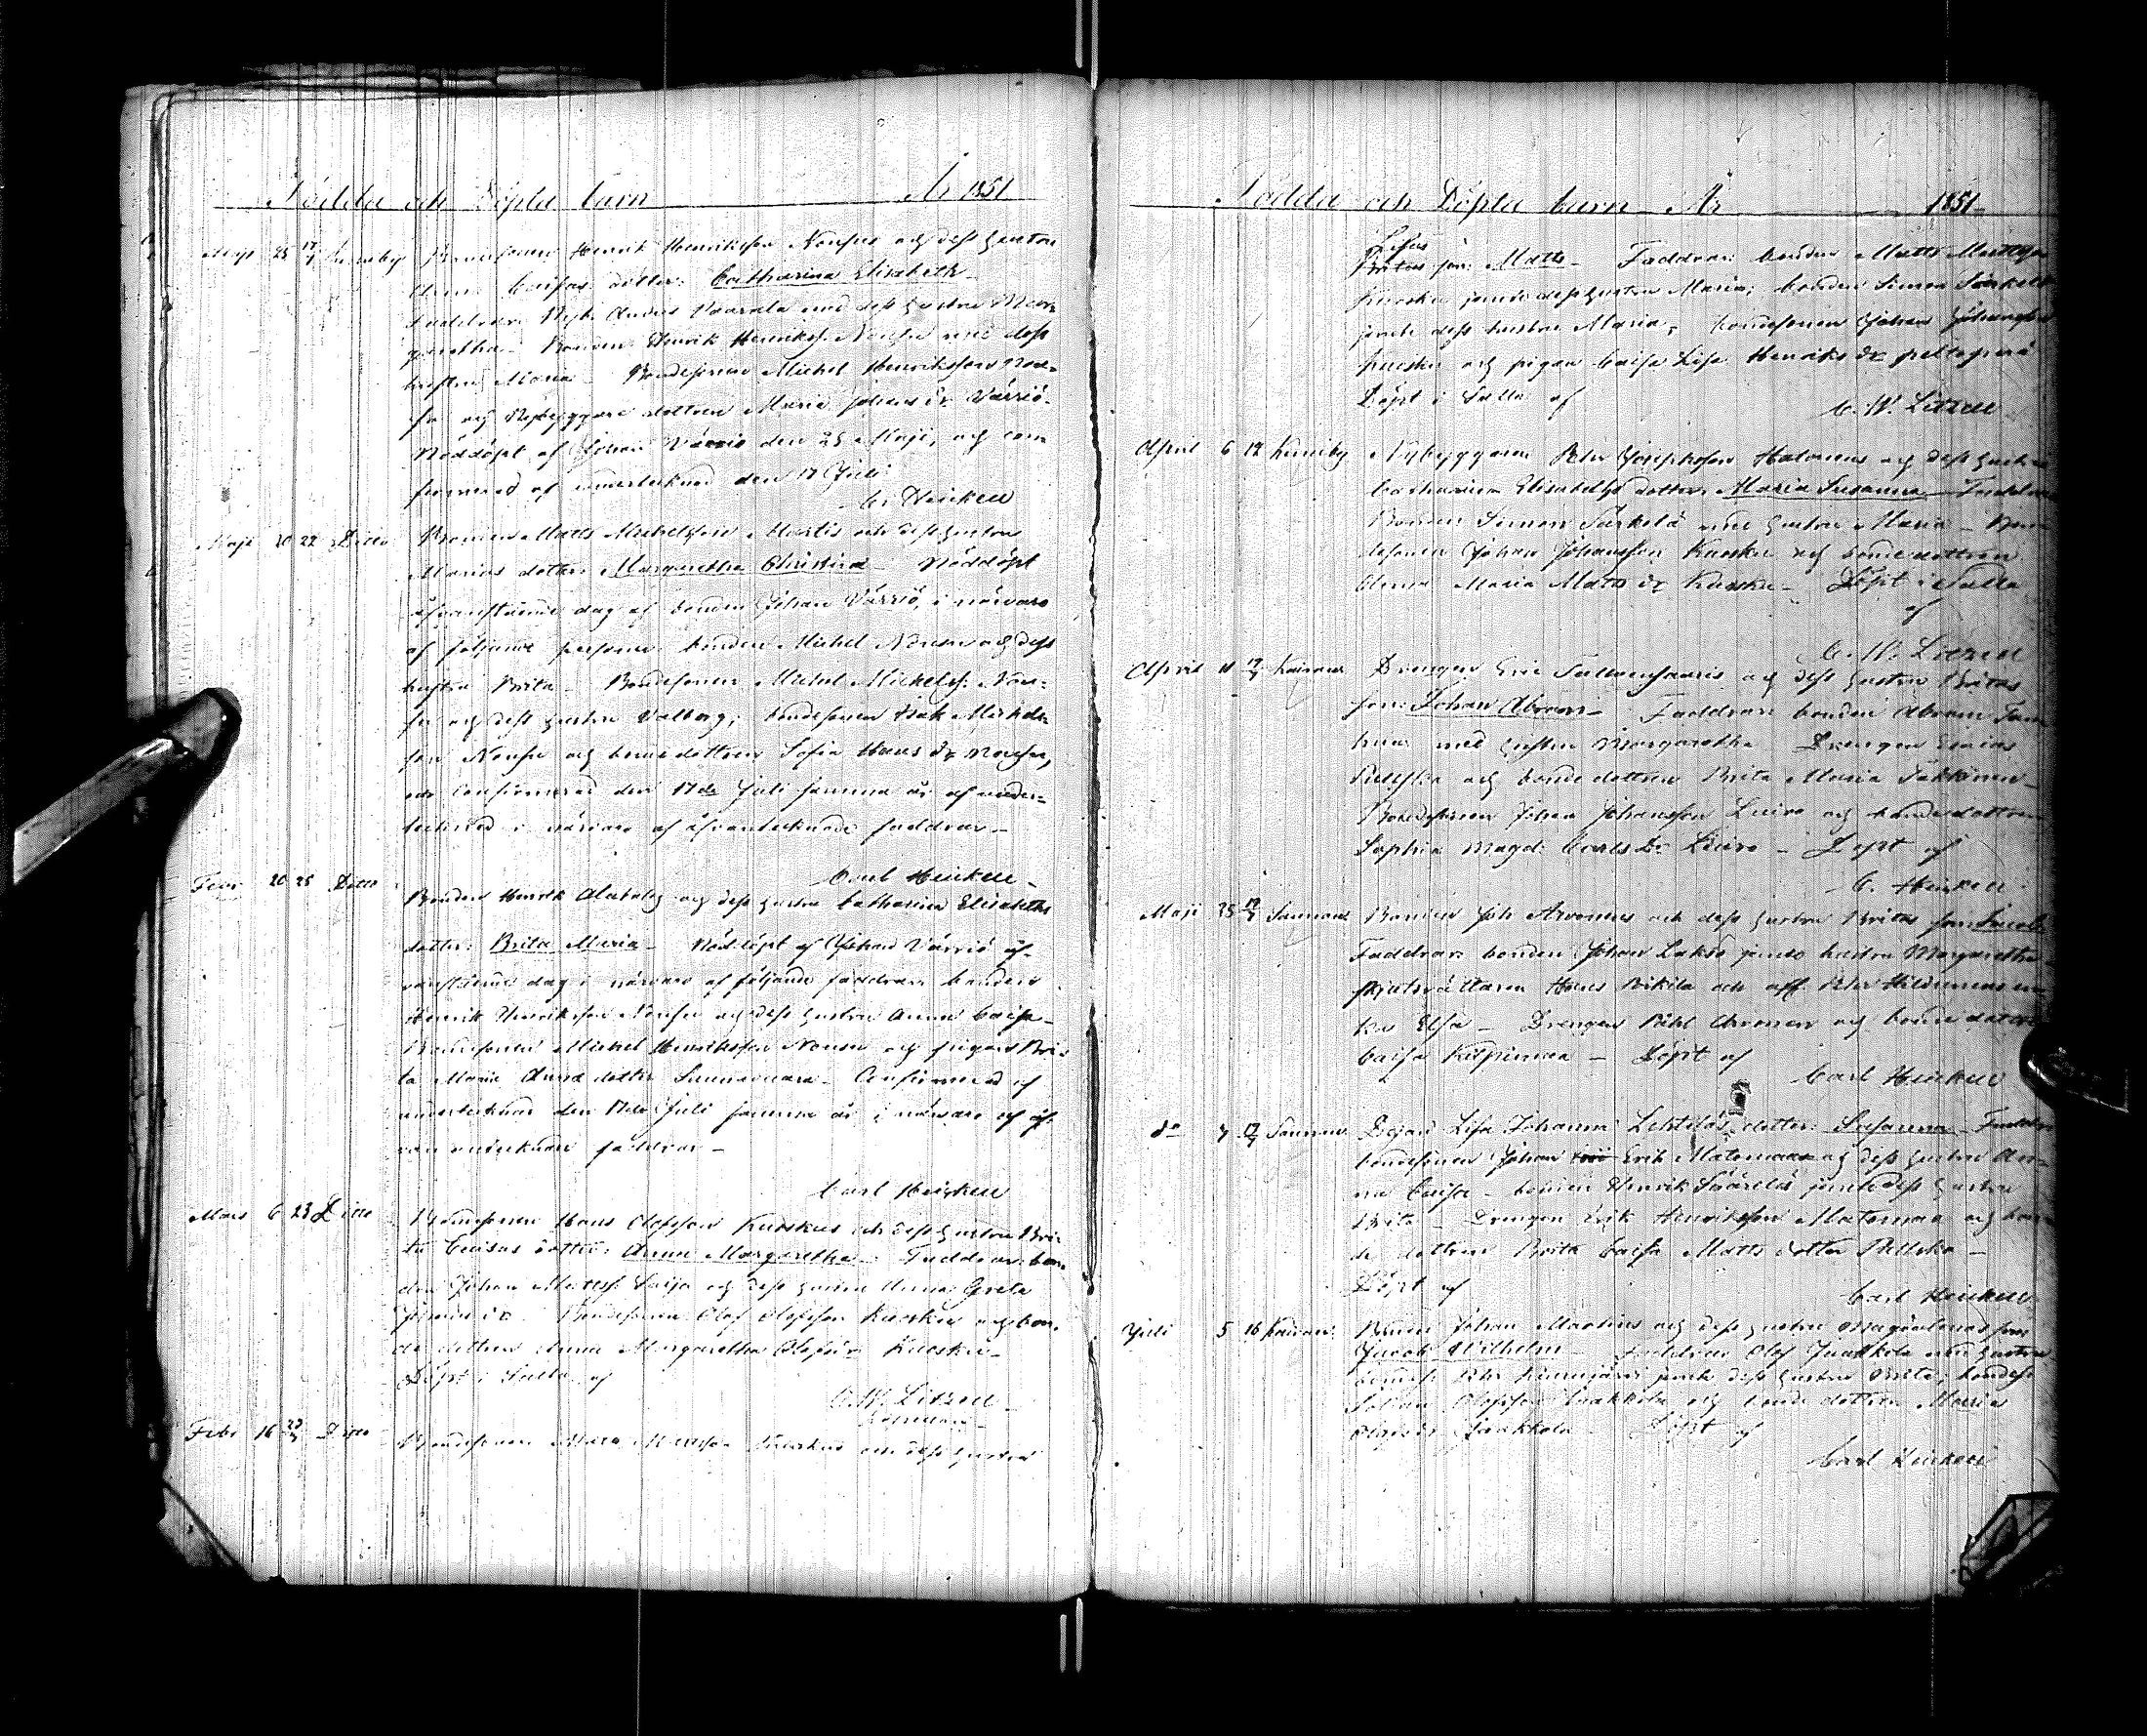 Födda och Döpta barn År 1851
Maji 25 17/7 Kuruby Bondesonen Henrik Henriksson Nousus och dess hustru
Anna Caisas dotter: Catharina Elisabeth
Faddrar: Nyb. Anders Vaarala med dess hustru Mar-
garetha. Bonden Henrik Henriks. Nousu med dess
hustru Maria. Bondesonen Michel Henriksson Nou-
su och Nybyggare dottren Maria Johans dr Värriö.
Nöddöpt af Johan Värriö den 25 Maji, och con-
firmerad af undertecknad den 17 Juli
C. Heickell
Maji 20 22 Ditto Bonden Matts Michelsson Martis och dess hustrus
Marias dotter: Margaretha Christina. Nöddöpt
ofvanstående dag af bonden Johan Värriö, i närvaro
af följande personer: bonden Michel Nousu och dess
hustru Brita. Bondesonen Michel Michels. Nou-
su och dess hustru Valborg; bondesonen Isak Michels-
son Nousu och bonde dottren Sofia Hans dr Nousu,
och confirmerad den 17de Juli samma år af under-
tecknad i närvaro af ofvantecknade faddrar.
Carl Heickell
Febr 20 25 Ditto Bonden Henrik och dess hustrus Catharina Elisabeths
dotter: Brita Maria. Nöddöpt af Johan Värriö of-
vanstående dag i närvaro af följande faddrar: bonden
Henrik Henriksson Nousu och dess hustru Anna Caisa.
Bondesonen Michel Henriksson Nousu och pigan Bri-
ta Maria dotter. Confirmerad af
undertecknad den 17de Juli samma år i närvaro af of-
van faddrar.
Carl Heickell
Mars 6 23 Ditto Bondesonen Hans Olofsson Kuoskus och dess hustru Bri-
ta Caisas dotter: Anna Margaretha. Faddrar: bon-
den Johan Matts. Saija och dess hustru Anna Greta
Bondesonen Olof Olofsson Kuosku och bon-
de dottren Anna Margaretha Olofs dr Kuosku.
Döpt i Salla af
C. W. Litzell
Febr 16 23 Ditto Bondesonen Mats Mattsson Kuoskus och dess hustrus
Födda och Döpta barn År 1851
Lisas
Britas son: Matts. Faddrar: bonden Matts Mattsson
Kuosku jemte dess hustru Maria; bonden Simon Särkelä
jemte dess hustru Maria; bondesonen Johan Johansson
Kuosku och pigan Caisa Lisa Henriks dr
Döpt i Salla af
C. W. Litzell
April 6 12 Kuruby Nybyggaren Petr Josephsson Halonens och dess hustrus
Catharina Elisabeths dotter: Maria Susanna. Faddrar
Bonden Simon Särkelä med hustru Maria. Bon-
desonen Johan Johansson Kuosku och bonde dottren
Anna Maria Matts dr Kuosku. Döpt i Salla
af
C. W. Litzell
April 11 Kairivaara Drengen Eric och dess hustrus Britas
son: Johan Abram. Faddrar: bonden Abram
med hustru Margaretha. Drengen Elias
Pulska och bonde dottren Brita Maria
Bondesonen Johan Johansson Luiro och bonde dottren
Sophia Magd. Carls dr Luiro. Döpt af
C. Heickell
Maji 25 17/7 Saunav. Bonden Joh. Arvonens och dess hustrus Britas son: Jacob
Faddrar: bonden Johan Lakso jemte hustru Margaretha
Hans Pikila och Petr
Elsa. Drengen Påhl Arvonen och bonde dottren
Caisa Kilpimaa. Döpt af
Carl Heickell
do 4 17/7 Saunav. Lisa Johanna Lehtelä's dotter: Susanna. Faddrar
bondesonen Johan Erik Matomaa och dess hustru An-
na Caisa. bonden Henrik Säärelä jemte dess hustru
Brita. Drengen Erik Henriksson Matomaa och bon-
de dottren Brita Caisa Matts dotter Pulska.
Döpt af
Carl Heickell
Juli 5 16 Kairiv. Bonden Johan Martins och dess hustrus Magdalenas son
Jacob Wilhelm. Faddrar: Olof Jaakkola med hustru
bondes. Petr Kemijärvi jemte dess hustru Brita; bondes.
Johan Olofsson Jaakkola och bonde dottren Maria
Olofs dr Jaakkola. Döpt af
Carl Heickell